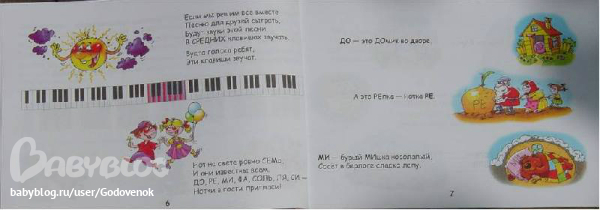 Если мы решим все вместе
Песню для друзей сыграть,
Будут звуки этой песни
В СРЕДНИХ клавишах звучать.
Будто голоса ребят,
Эти клавиши звучат.
Нот на свете ровно СЕМЬ,
И они известны всем.
ДО, РЕ, МИ, ФА, СОЛЬ, ЛЯ, СИ —
Нотки в гости пригласи!
6
ДО — это ДОмик во дворе,
А это РЕпка — нотка РЕ.
РЕ
МИ — бурый МИшка косолапый,
Сосёт в берлоге сладко лапу.
7
BABYBLOG
babyblog.ru/user/Godovenok